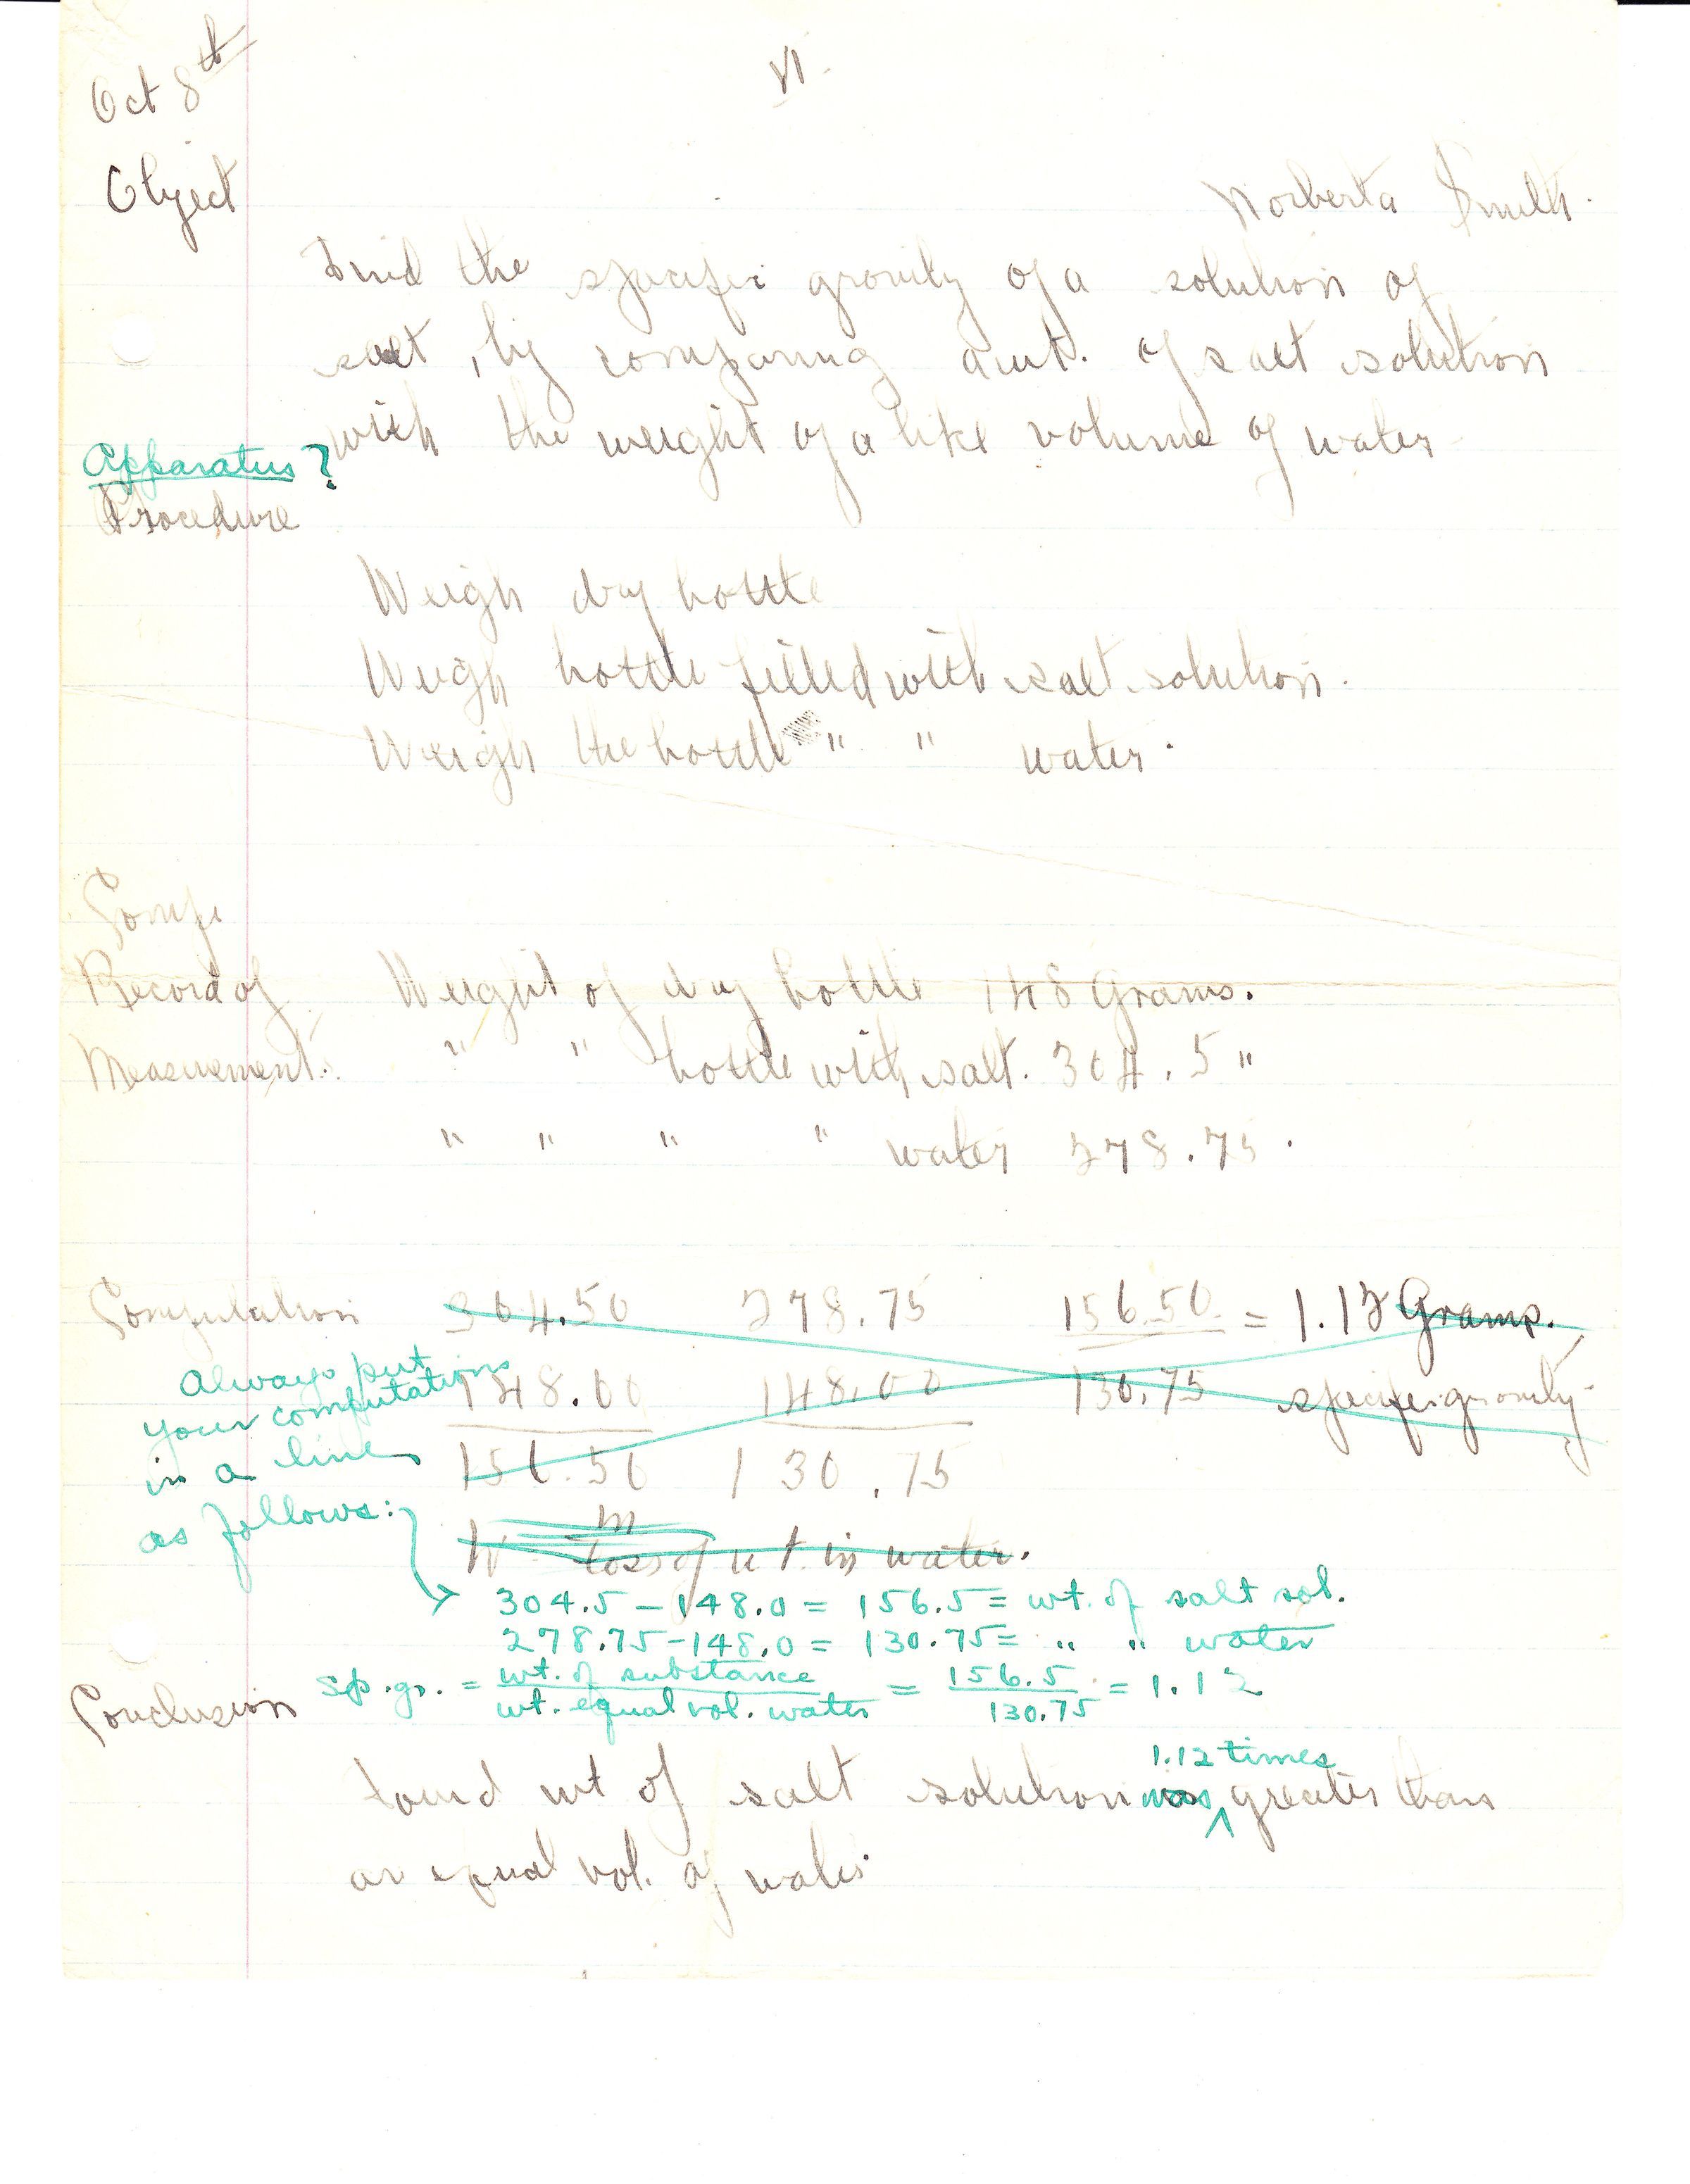 Oct 8th
VI
Object
Norberta Smith.
Find the specific gravity of a solution of
salt, by comparing amt. of salt solution
with the weight of a like volume of water
Apparatus ?
Procedure
Weigh dry bottle
Weigh bottle filled with salt solution.
Weigh the bottle " " water.
Comp
Record of Weight of dry bottle 148 Grams.
Measurement. " " bottle with salt. 304.5 "
" " " " water 278.75.
Computation 304.50 278.75 156.50 = 1.12 Grams.
148.00 148.00 130.75 specific gravity
156.50 130.75
Always put
your computations
in a line
as follows:
W m
loss of wt in water.
304.5 - 148.0 = 156.5 = wt. of salt sol.
278.75 - 148.0 = 130.75 = " " water
Conclusion sp. gr. = wt. of substance / wt. equal vol. water = 156.5 / 130.75 = 1.12
1.12 times
Found wt of salt solution was ^ greater than
an equal vol. of water